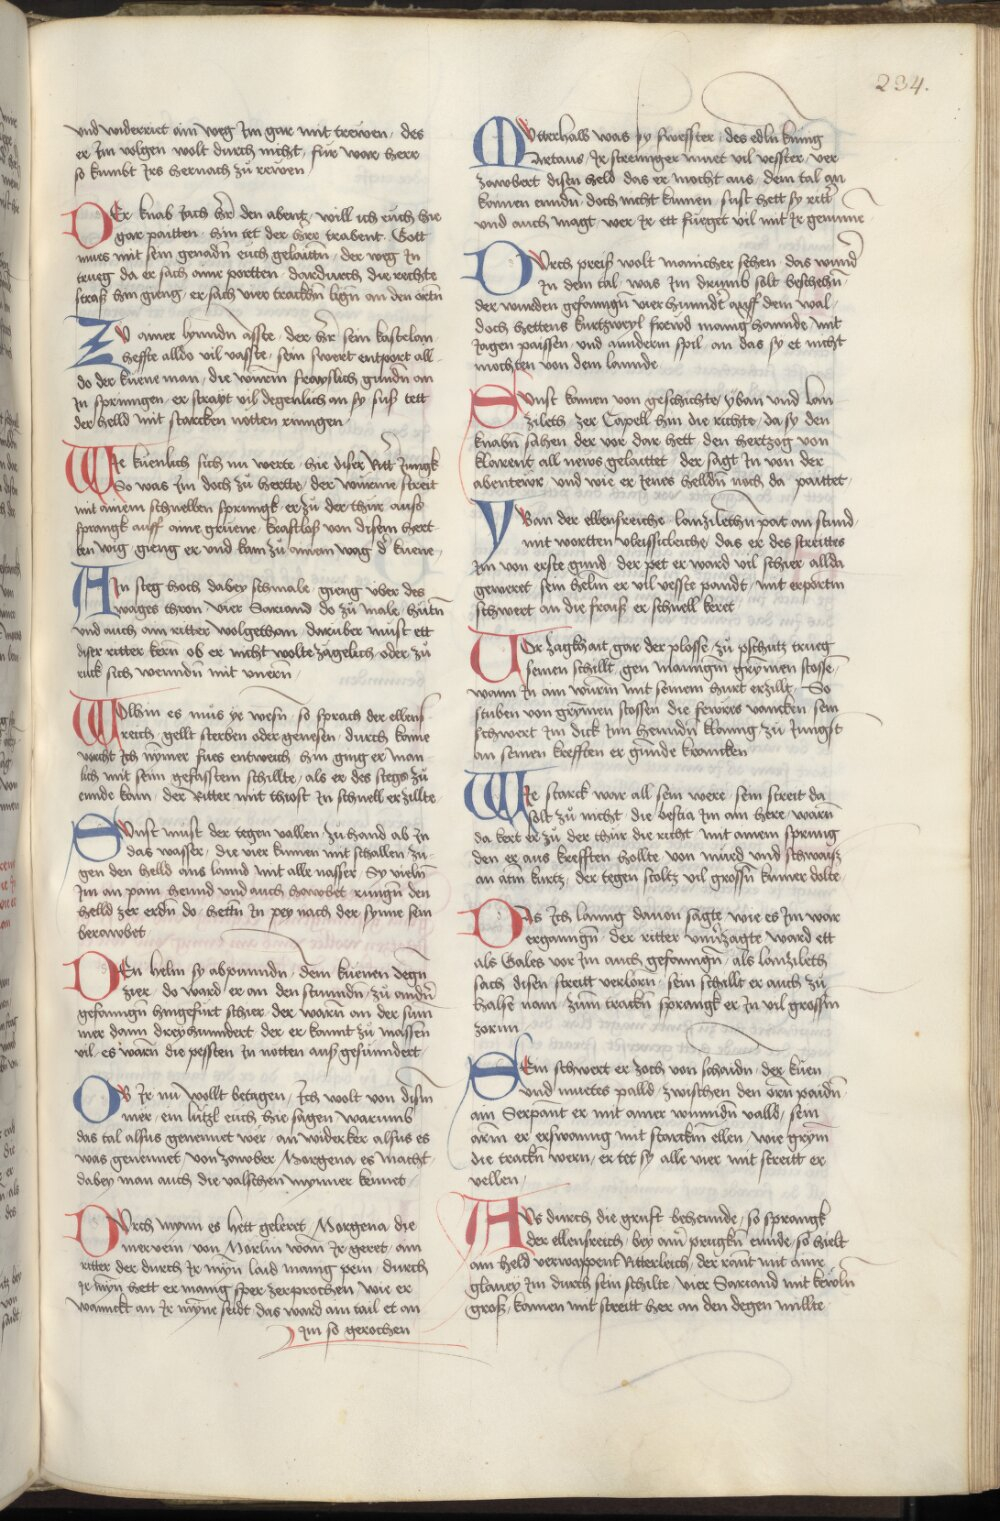 234.
und widerriet ain weg Im gar mit trewen / des
er Im volgen wolt durch nicht / für war herr
so kumbt Irs hernach zů rewen /
DEr knab sach h̄r den abent / will ich euch hie
gar paitten / hin tet der herr trabent / Gott
mues mit sein genadn̄ euch gelaittn̄ / der weg In
trueg da er sach ainr portten / dardurch die rechte
straß hin gieng / er sach vier trackhn̄ lign̄ an den ortn̄
ZU ainer lynndn̄ asste / der h̄r sein kastelan
heffte alldo vil vasste / sein swert entport all
do der küene man / die würm frayslich gundn̄ an
In springen / er strayt vil degenlich an sy suß tett
der helld mit starcken nötten ringen /
WIe küenlich sich nu werte / hie diser Ritter Jungk
So was Im doch zů hertte / der würme streit
mit ainem schnellen sprungk / er zů der thür auß
sprangk auff aine gruene / krafftloß von disem hert
ten wig / gieng er und kam zů ainem wag d̄ küene /
AIn steg hoch dabey schmale / gieng über des
wages thron / vier Sariand do zů male / hütn̄
und auch ain ritter wolgethan / darüber müst ett
diser ritter kern / ob er nicht wolte zagelich oder zů
rück sich wenndn̄ mit unern̄ /
WOlhin es mus ye wesn̄ / so sprach der ellens
reich / gellt sterben oder genesen / durch kaine
vorcht Ich nymer fues entweich / hin ging er man
lich mit sein gefasstem schillte / als er des stegs zů
ennde kam / der Ritter mit thiost In schnell erzillte
SUnst must der tegen vallen / zů hand ab In
das wasser / die vier kumen mit schallen / zu
gen den helld ans lannd mit alle nasser / Sy vieln̄
Im an pain hennd und auch hawbet / rungn̄ den
helld zer erdn̄ do / hettn̄ In pey nach der synne sein
berawbet
DEn helm sy abpunndn̄ / dem küenen degn̄
zier / do ward er an den stunndn̄ / zů andn̄
gefanngn̄ hingefürt schier / der warn̄ an der sum
mer dann dreyhunndert / der er kannt zů massen
vil / es warn̄ die pessten In nötten auß gesunndert
OB Ir nu wollt betagen / Ich wolt von disn̄
mer / ein lützl euch hie sagen / warumb
das tal alsus genennet wer / an widerker alsus es
was genennet / von zawber / Morgena es macht /
dabey man auch die valschen mynner kennet
DUrch mynn es hett geleret / Morgena die
mervein / von Morlin wan Ir geret / ain
ritter der durch Ir myn̄ laid manig pein / durch
Ir myn̄ hett er manig sper zerprochen / wie er
wannckt an Ir myne seidt / das ward ain tail et an
im so gerochen
MUtterhalb was sy swesster / des edln künig
Artaus / Ir strennger muet vil vesster / ver
zawbert disen held das er mocht aus / dem tal an
komen enndn̄ / doch nicht künen / sust hett sy ritt̄
und auch magt / wer Ir ett füeget vil mit Ir gewinne
DUrch preiß wolt manicher sehen / das wund̄
In dem tal / was Im drumb solt beschehn̄ /
der wurden gefanngn̄ vier hunndt̄ auff dem wal /
doch hettens kurtzweyl frewd manighannde / mit
Jagen paissen / und anndern spil / an das sy et nicht
mochten von dem lannde
SUnst kamen von geschichte / yban und lan
zileth / zer Capell hin die richte / da sy den
knabn̄ sahen der vor dar hett / den hertzog von
klarent all news gelaittet / der sagt In von der
abenteur / und wie er Jenes helldn̄ noch da paittet /
YBan der ellensreiche / lanzilethn̄ pat an stund /
mit wortten vleissicleiche / das er des streittes
Im von erste gund / der pet er ward vil schier allda
geweret / sein helm̄ er vil vesste pandt / mit erportm̄
schwert an die fraiß er schnell keret
VOr zaghait gar der plosse / zů pschutz trueg
seinen schillt / gen manigm̄ grymen stosse /
wann In ain würm mit seinem hurt erzillt / So
stuben von grymen stossen die fewres vancken / sein
schwert Im dick Inn henndn̄ klanng / zů Jungst
an seinen krefften er gunde krancken
WIe starck war all sein were / sein streit da
solt zů nicht / die bestia Im ain here / warn̄
da kert er zů der thür die richt / mit ainem sprung
den er aus krefften hollte / von müed und schwaiß
an atm̄ kurtz / der tegen stoltz vil grossn̄ kumer dolte
DAs Ich lanng davon sagte / wie es Im war
ergannngn̄ / der ritter unv̄zagte / ward ett
als Gales vor Im auch gefanngn̄ / als lanzileth
sach disen streitt verlorn̄ / sein schillt er auch zů
halse nam / zům trackn̄ sprangk er In vil grossm̄
zorm
SEin schwert er zoch von schaidn̄ / der küen
und muetes palld / zwischen den orn̄ paidn̄ /
ain Serpant er mit ainer wunndn̄ valld / sein
arm̄ er erswanng mit starckm̄ ellen / wie grym̄
die trackn̄ wern / er tet sy alle vier mit streitt er
vellen /
AUs durch die gruft behennde / so sprangk
der ellensreich / bey ain̄ prugkn̄ ennde / so hielt
ain held verwappent Ritterleich / der rant mit ainr
glaney Im durch sein schilte / vier Sariand mit kewln̄
groß / kamen mit streitt her an den degen millte